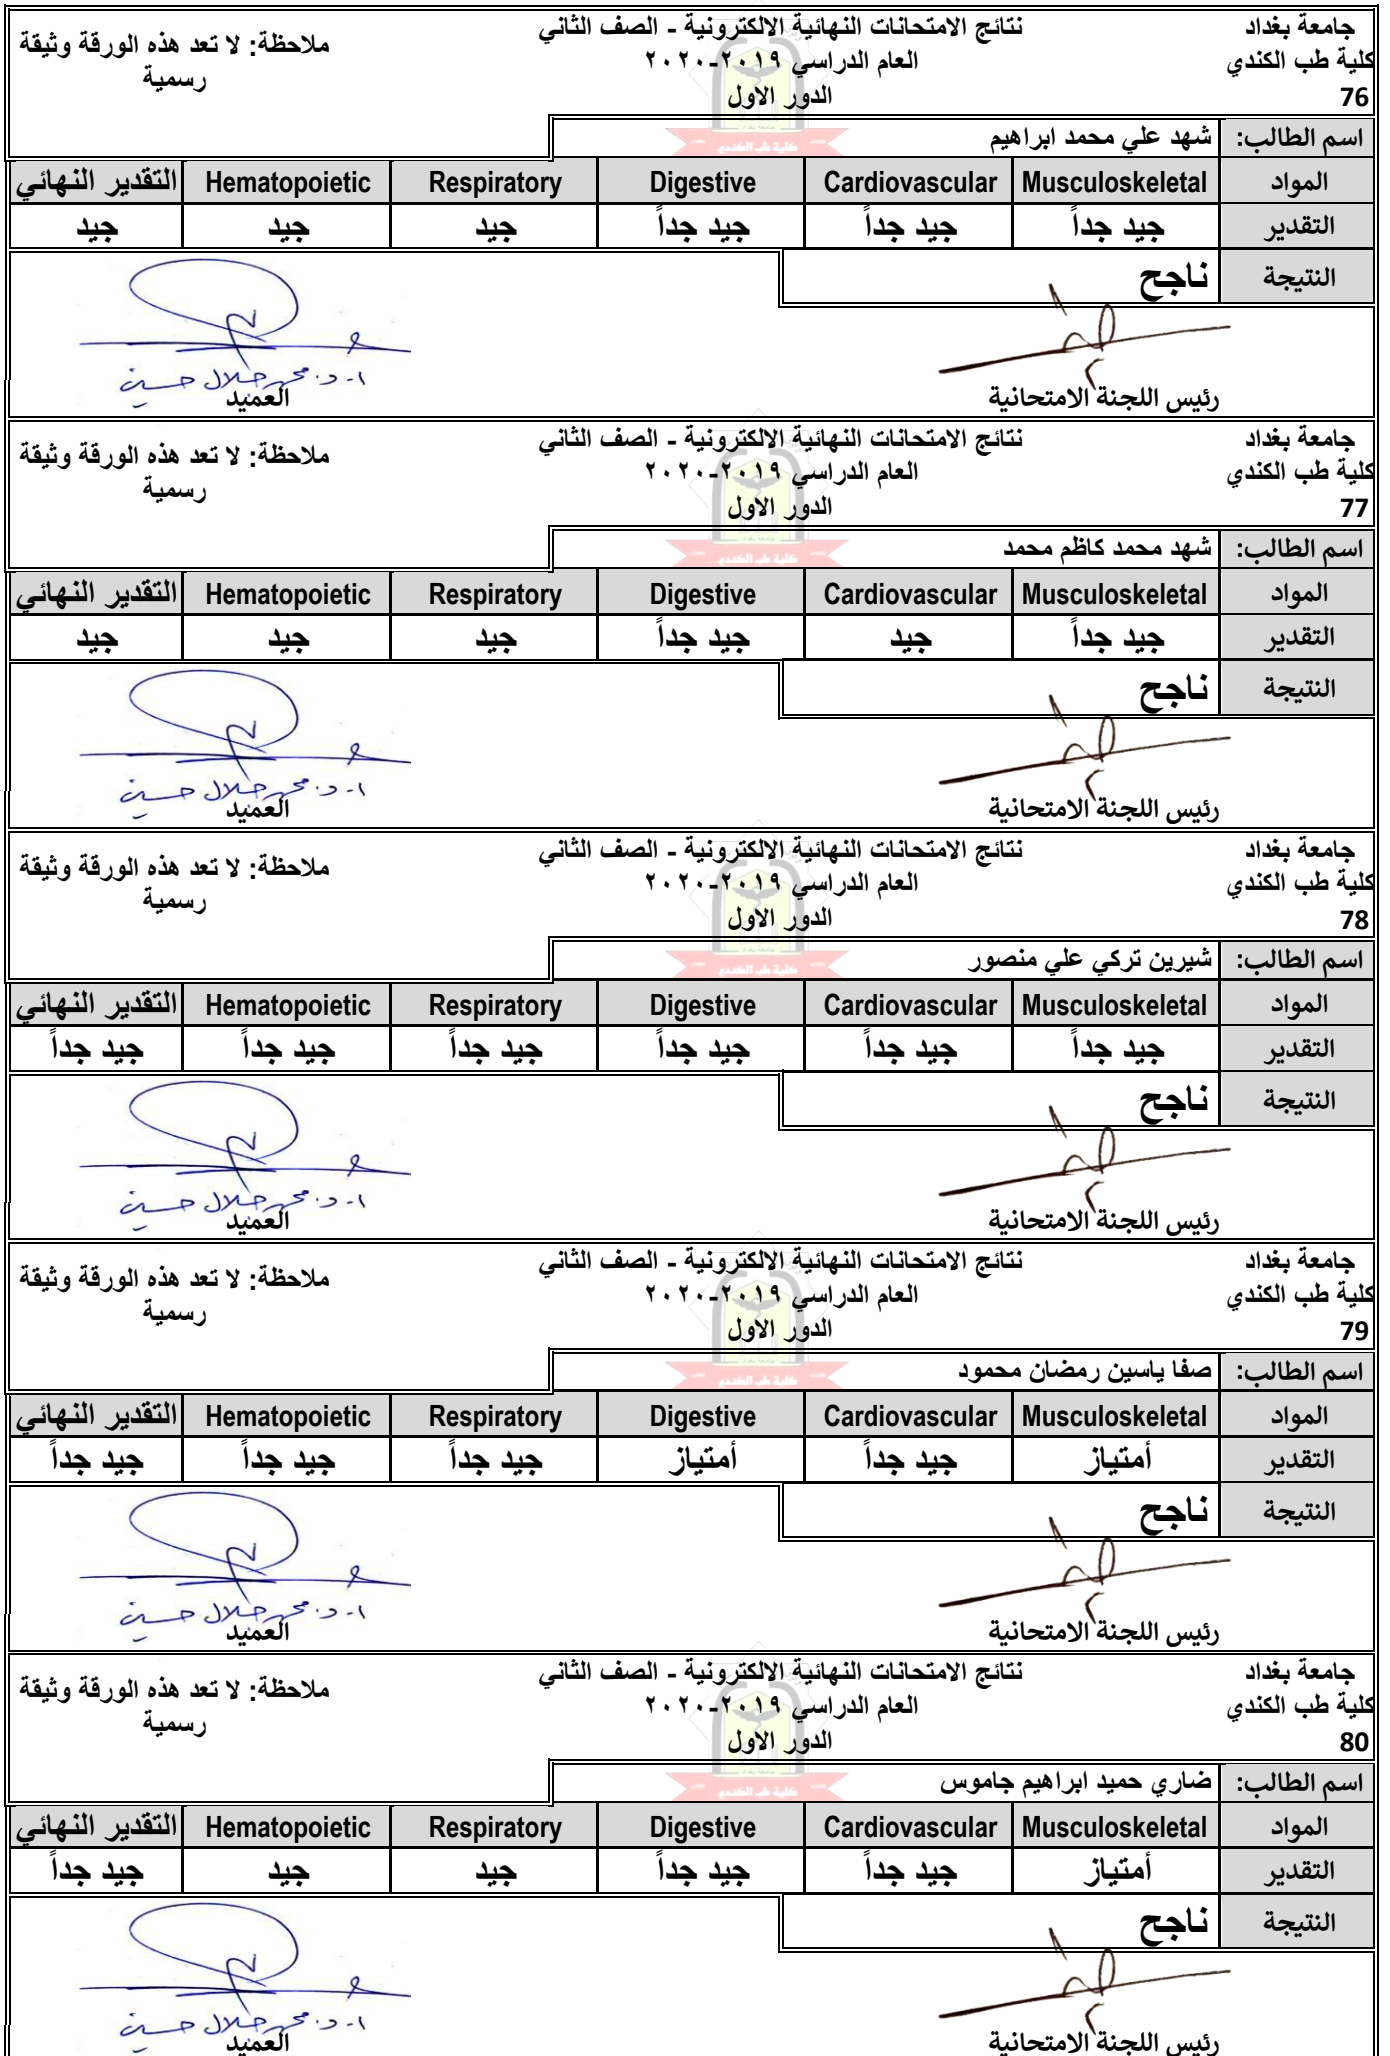 جامعة بغداد
كلية طب الكندي
76
نتائج الامتحانات النهائية الالكترونية - الصف الثاني
العام الدراسي ٢٠١٩-٢٠٢٠
الدور الاول
ملاحظة: لا تعد هذه الورقة وثيقة
رسمية
اسم الطالب: شهد علي محمد ابراهيم
المواد Musculoskeletal Cardiovascular Digestive Respiratory Hematopoietic التقدير النهائي
التقدير جيد جداً جيد جداً جيد جداً جيد جيد جيد
النتيجة ناجح
أ.د. محمد جلال حسين
رئيس اللجنة الامتحانية العميد
جامعة بغداد
كلية طب الكندي
77
نتائج الامتحانات النهائية الالكترونية - الصف الثاني
العام الدراسي ٢٠١٩-٢٠٢٠
الدور الاول
ملاحظة: لا تعد هذه الورقة وثيقة
رسمية
اسم الطالب: شهد محمد كاظم محمد
المواد Musculoskeletal Cardiovascular Digestive Respiratory Hematopoietic التقدير النهائي
التقدير جيد جداً جيد جيد جداً جيد جيد جيد
النتيجة ناجح
أ.د. محمد جلال حسين
رئيس اللجنة الامتحانية العميد
جامعة بغداد
كلية طب الكندي
78
نتائج الامتحانات النهائية الالكترونية - الصف الثاني
العام الدراسي ٢٠١٩-٢٠٢٠
الدور الاول
ملاحظة: لا تعد هذه الورقة وثيقة
رسمية
اسم الطالب: شيرين تركي علي منصور
المواد Musculoskeletal Cardiovascular Digestive Respiratory Hematopoietic التقدير النهائي
التقدير جيد جداً جيد جداً جيد جداً جيد جداً جيد جداً جيد جداً
النتيجة ناجح
أ.د. محمد جلال حسين
رئيس اللجنة الامتحانية العميد
جامعة بغداد
كلية طب الكندي
79
نتائج الامتحانات النهائية الالكترونية - الصف الثاني
العام الدراسي ٢٠١٩-٢٠٢٠
الدور الاول
ملاحظة: لا تعد هذه الورقة وثيقة
رسمية
اسم الطالب: صفا ياسين رمضان محمود
المواد Musculoskeletal Cardiovascular Digestive Respiratory Hematopoietic التقدير النهائي
التقدير أمتياز جيد جداً أمتياز جيد جداً جيد جداً جيد جداً
النتيجة ناجح
أ.د. محمد جلال حسين
رئيس اللجنة الامتحانية العميد
جامعة بغداد
كلية طب الكندي
80
نتائج الامتحانات النهائية الالكترونية - الصف الثاني
العام الدراسي ٢٠١٩-٢٠٢٠
الدور الاول
ملاحظة: لا تعد هذه الورقة وثيقة
رسمية
اسم الطالب: ضاري حميد ابراهيم جاموس
المواد Musculoskeletal Cardiovascular Digestive Respiratory Hematopoietic التقدير النهائي
التقدير أمتياز جيد جداً جيد جداً جيد جيد جيد جداً
النتيجة ناجح
أ.د. محمد جلال حسين
رئيس اللجنة الامتحانية العميد